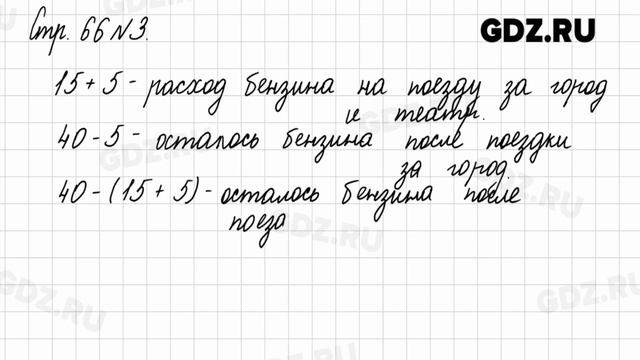 Стр. 66 N3.
GDZ.RU
15+5 - расход бензина на поезду за город
и театр.
40-5 - осталось бензина после поездки
за город.
40-(15+5) - осталось бензина после
поеза
GDZ.RU
GDZ.RU
GDZ.RU
GDZ.RU
GDZ.RU